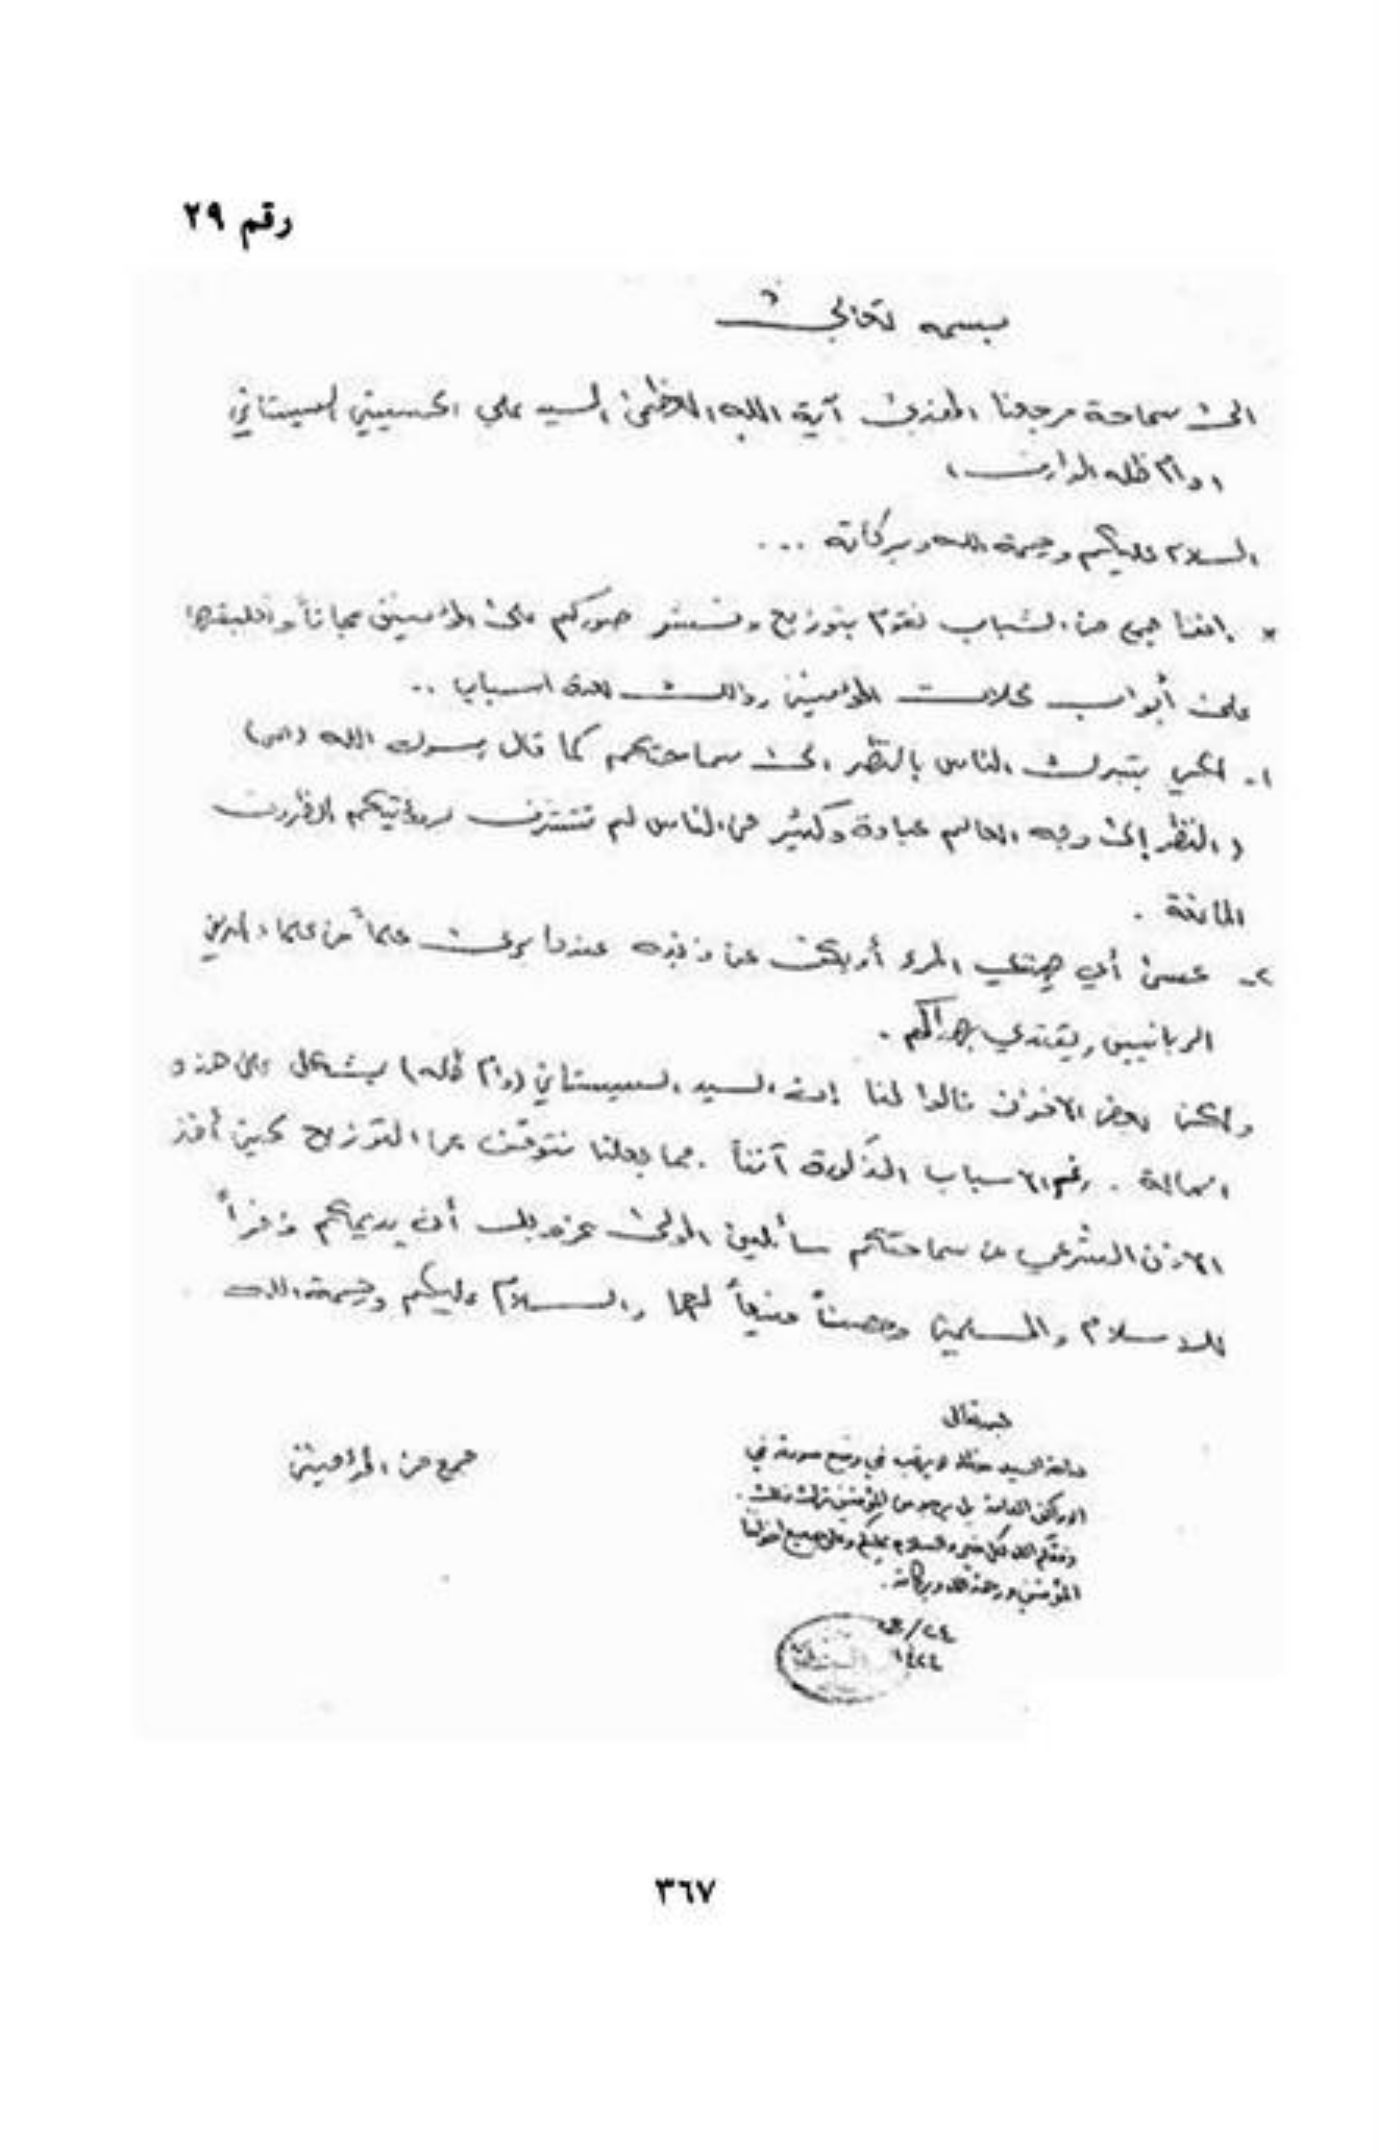 رقم ٢٩
بسمه تعالى
الى سماحة مرجعنا المفدى آية الله العظمى السيد علي الحسيني السيستاني
(دام ظله الوارف)
السلام عليكم ورحمة الله وبركاته ...
* إننا جمع من الشباب نقوم بتوزيع ونشر صوركم على المؤمنين مجاناً
على أبواب محلات المؤمنين وذلك لعدة اسباب ..
١- لكي يتبرك الناس بالنظر الى سماحتكم كما قال رسول الله (ص)
(النظر إلى وجه العالم عبادة وكثير من الناس لم تتشرف لرؤيتكم الظروف
المانعة .
٢- عسى أن يهتدي المرء أو يكف عن ذنبه عندما يرى علماً من علماء الدين
الربانيين ويقتدي بهداكم .
ولكن بعض الاخوان قالوا لنا إن السيد السيستاني (دام ظله) يشكل على هذه
المسألة . رغم الاسباب المذكورة آنفاً . مما جعلنا نتوقف عن التوزيع لحين أخذ
الاذن الشرعي من سماحتكم سائلين المولى عز وجل أن يديمكم ذخراً
للاسلام والمسلمين وحصناً منيعاً لهما والسلام عليكم ورحمة الله
جمع من المؤمنين
بسمه تعالى
سماحة السيد لا يرغب في وضع صورته في
الاماكن العامة بل يرجو من المؤمنين ترك ذلك .
وفقكم الله لكل خير والسلام عليكم وعلى جميع اخواننا
المؤمنين ورحمة الله وبركاته .
١٤٢٤
٣٦٧